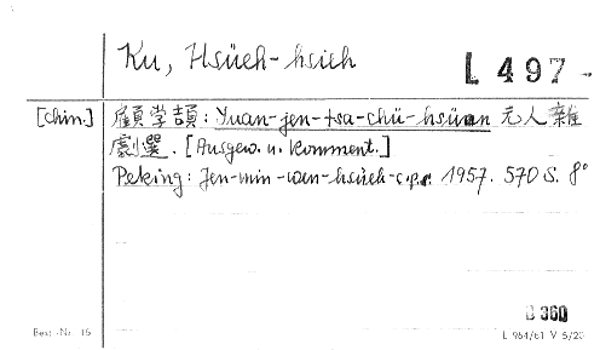 Ku, Hsüeh-hsieh
L 497-
[Chin.] 顧学頡: Yuan-jen-tsa-chü-hsüan 元人雜
劇選. [Ausgew. u. komment.]
Peking: Jen-min-wen-hsüeh-c.p.s. 1957. 570 S. 8°
B 360
Best.-Nr. 15
L 964/61 V 5/20